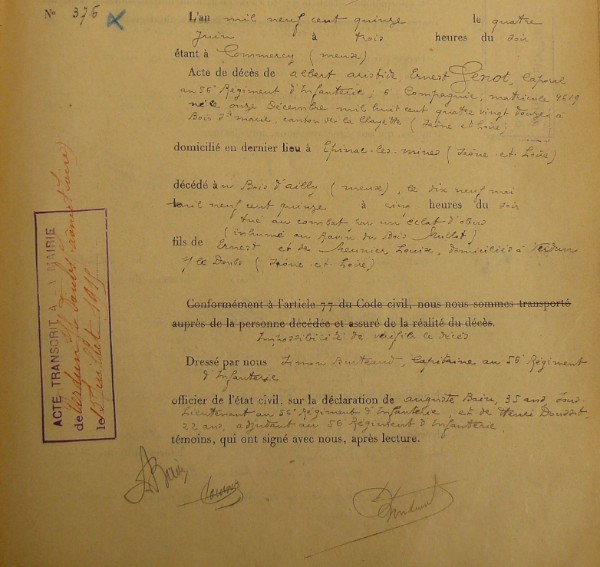 N° 376
L'an mil neuf cent quinze le quatre
Juin à trois heures du soir
étant à Commercy (Meuse)
Acte de décès de Albert Aristide Ernest Genot, Caporal
au 56e Régiment d'Infanterie, 6 Compagnie, matricule 4619
né le onze Décembre mil huit cent quatre vingt douze à
Bois Ste Marie, canton de la Clayette (Saône et Loire)
domicilié en dernier lieu à Epinac-les-mines (Saône et Loire)
décédé au Bois d'ailly (Meuse), le dix neuf mai
mil neuf cent quinze à cinq heures du soir
tué au combat par un éclat d'obus
(inhumé au Ravin du Bois Mullot)
fils de Ernest et de Meunier Louise, domiciliés à Verdun
s/ le Doubs (Saône et Loire)
Conformément à l'article 77 du Code civil, nous nous sommes transporté
auprès de la personne décédée et assuré de la réalité du décès.
Impossibilité de vérifier le décès
Dressé par nous Simon, Capitaine au 56e Régiment
d'Infanterie
officier de l'état civil, sur la déclaration de Auguste Bair, 35 ans, Sous-
Lieutenant au 56e Régiment d'Infanterie et de Henri Doussot
22 ans, adjudant au 56 Régiment d'Infanterie
témoins, qui ont signé avec nous, après lecture.
ABair
ACTE TRANSCRIT A LA MAIRIE
de Verdun s/ le Doubs (Saône et Loire)
le 15 Juillet 1915